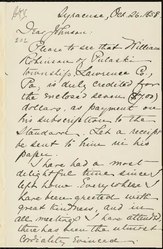 Syracuse, Oct 26, 18
Dear Johnson:
Please to see that William
Robinson of Pulaski
township, Lawrence Co,
Pa, is duly credited for
the inclosed seven
dollars, as payment on
his subscription to the
Standard. Let a receipt
be sent to him in his
paper.
I have had a most
delightful time since I
left home. Everywhere I
have been greeted with
great kindness, and in
all meetings I have attended
there has been the utmost
cordiality evinced.